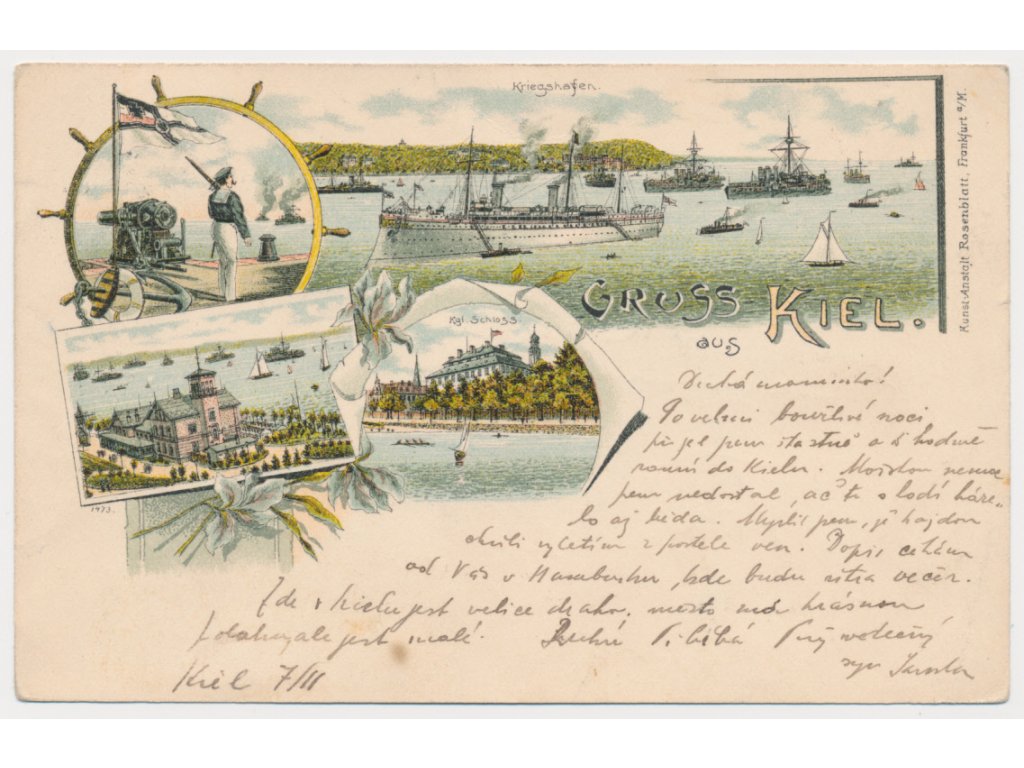 Kriegshafen.
Kunst-Anstalt Rosenblatt, Frankfurt a/M.
GRUSS
aus
KIEL.
Kgl. Schloss.
1473.
Drahá maminko!
Po velmi bouřlivé noci
přijel jsem šťastně a 2 hodině
ranní do Kielu. Mořskou nemoc
jsem nedostal, ač to s lodí háze-
lo aj běda. Myslil jsem, že každou
chvíli vyletím z postele ven. Dopis čekám
od Vás v Hamburku, kde budu zítra večer.
Zde v Kielu jest velice draho, město má krásnou
polohu, ale jest malé. Ruku Ti líbá Tvůj vděčný
syn
Kiel 7/III